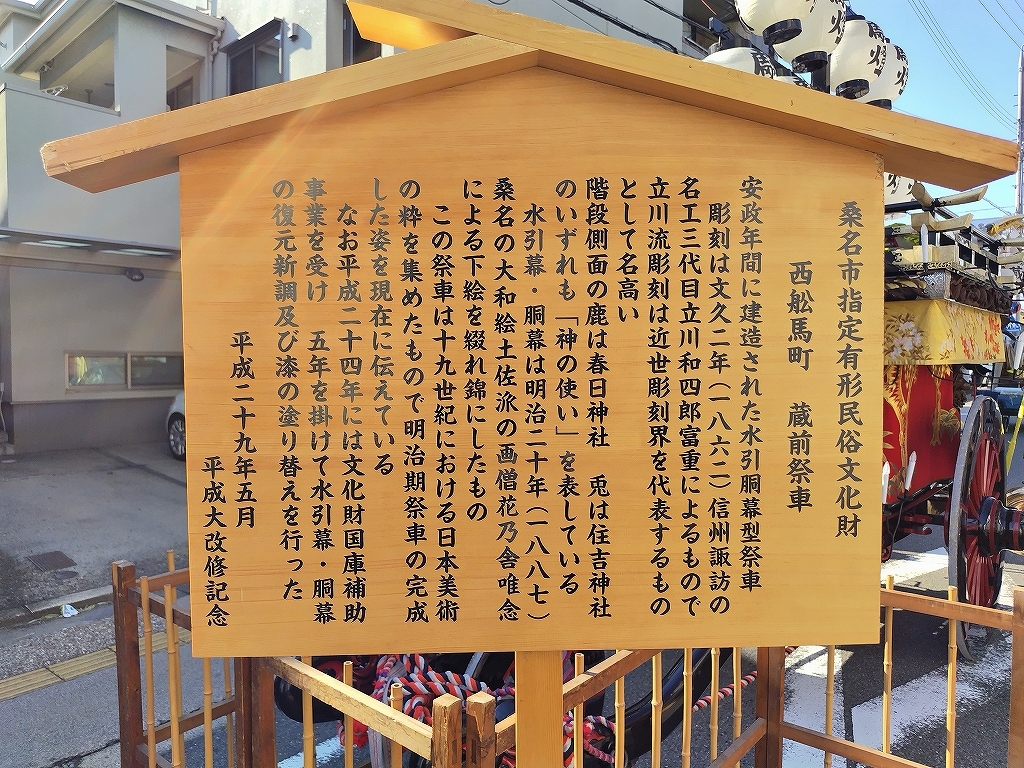 桑名市指定有形民俗文化財
西舩馬町　蔵前祭車
安政年間に建造された水引胴幕型祭車
彫刻は文久二年（一八六二）信州諏訪の
名工三代目立川和四郎富重によるもので
立川流彫刻は近世彫刻界を代表するもの
として名高い
階段側面の鹿は春日神社　兎は住吉神社
のいずれも「神の使い」を表している
水引幕・胴幕は明治二十年（一八八七）
桑名の大和絵土佐派の画僧花乃舎唯念
による下絵を綴れ錦にしたもの
この祭車は十九世紀における日本美術
の粋を集めたもので明治期祭車の完成
した姿を現在に伝えている
なお平成二十四年には文化財国庫補助
事業を受け　五年を掛けて水引幕・胴幕
の復元新調及び漆の塗り替えを行った
平成二十九年五月
平成大改修記念